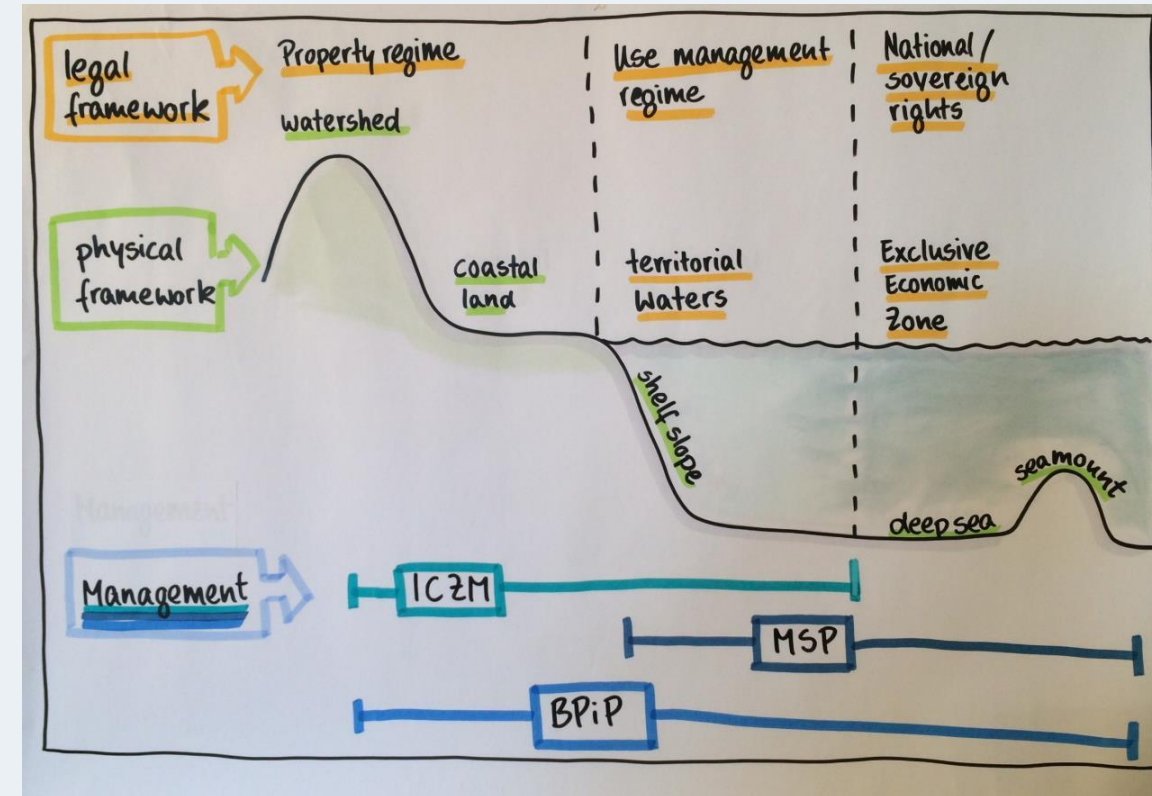 legal
framework
Property regime
watershed
Use management
regime
National/
sovereign
rights
physical
framework
coastal
land
territorial
waters
Exclusive
Economic
Zone
shelf slope
seamount
deep sea
Management
Management
ICZM
MSP
BPiP